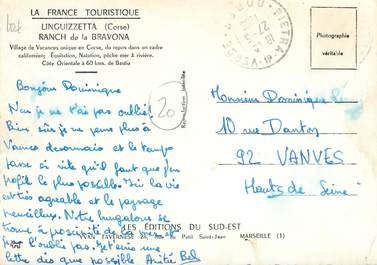 LA FRANCE TOURISTIQUE
LINGUIZZETTA (Corse)
RANCH de la BRAVONA
Village de Vacances unique en Corse, du repos dans un cadre
californien; Équitation, Natation, pêche mer & rivière.
Côte Orientale à 60 kms. de Bastia
PIETRA
27-5
Photographie
véritable
Reproduction interdite
20
Bonjour Dominique
Non je ne t'ai pas oublié!
Bien sûr je ne pense plus à
Vanves désormais et le temps
passe si vite qu'il faut que j'en
profite le plus possible. Ici la vie
est très agréable et le paysage
merveilleux. Notre bungalow se
trouve à proximité de la mer et
je t'écris une
lettre dès que possible Amitié
Monsieur Dominique
10 rue Danton
92 VANVES
Hauts de Seine
LES ÉDITIONS DU SUD-EST
IVAN TAVERNESE 26, Rue du Petit Saint-Jean MARSEILLE (1)